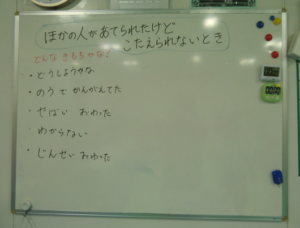 ほかの人があてられたけど
こたえられないとき
どんな きもちかな?
・どうしようかな
・のうで かんがえてた
・やばい おわった
・わからない
・じんせい おわった